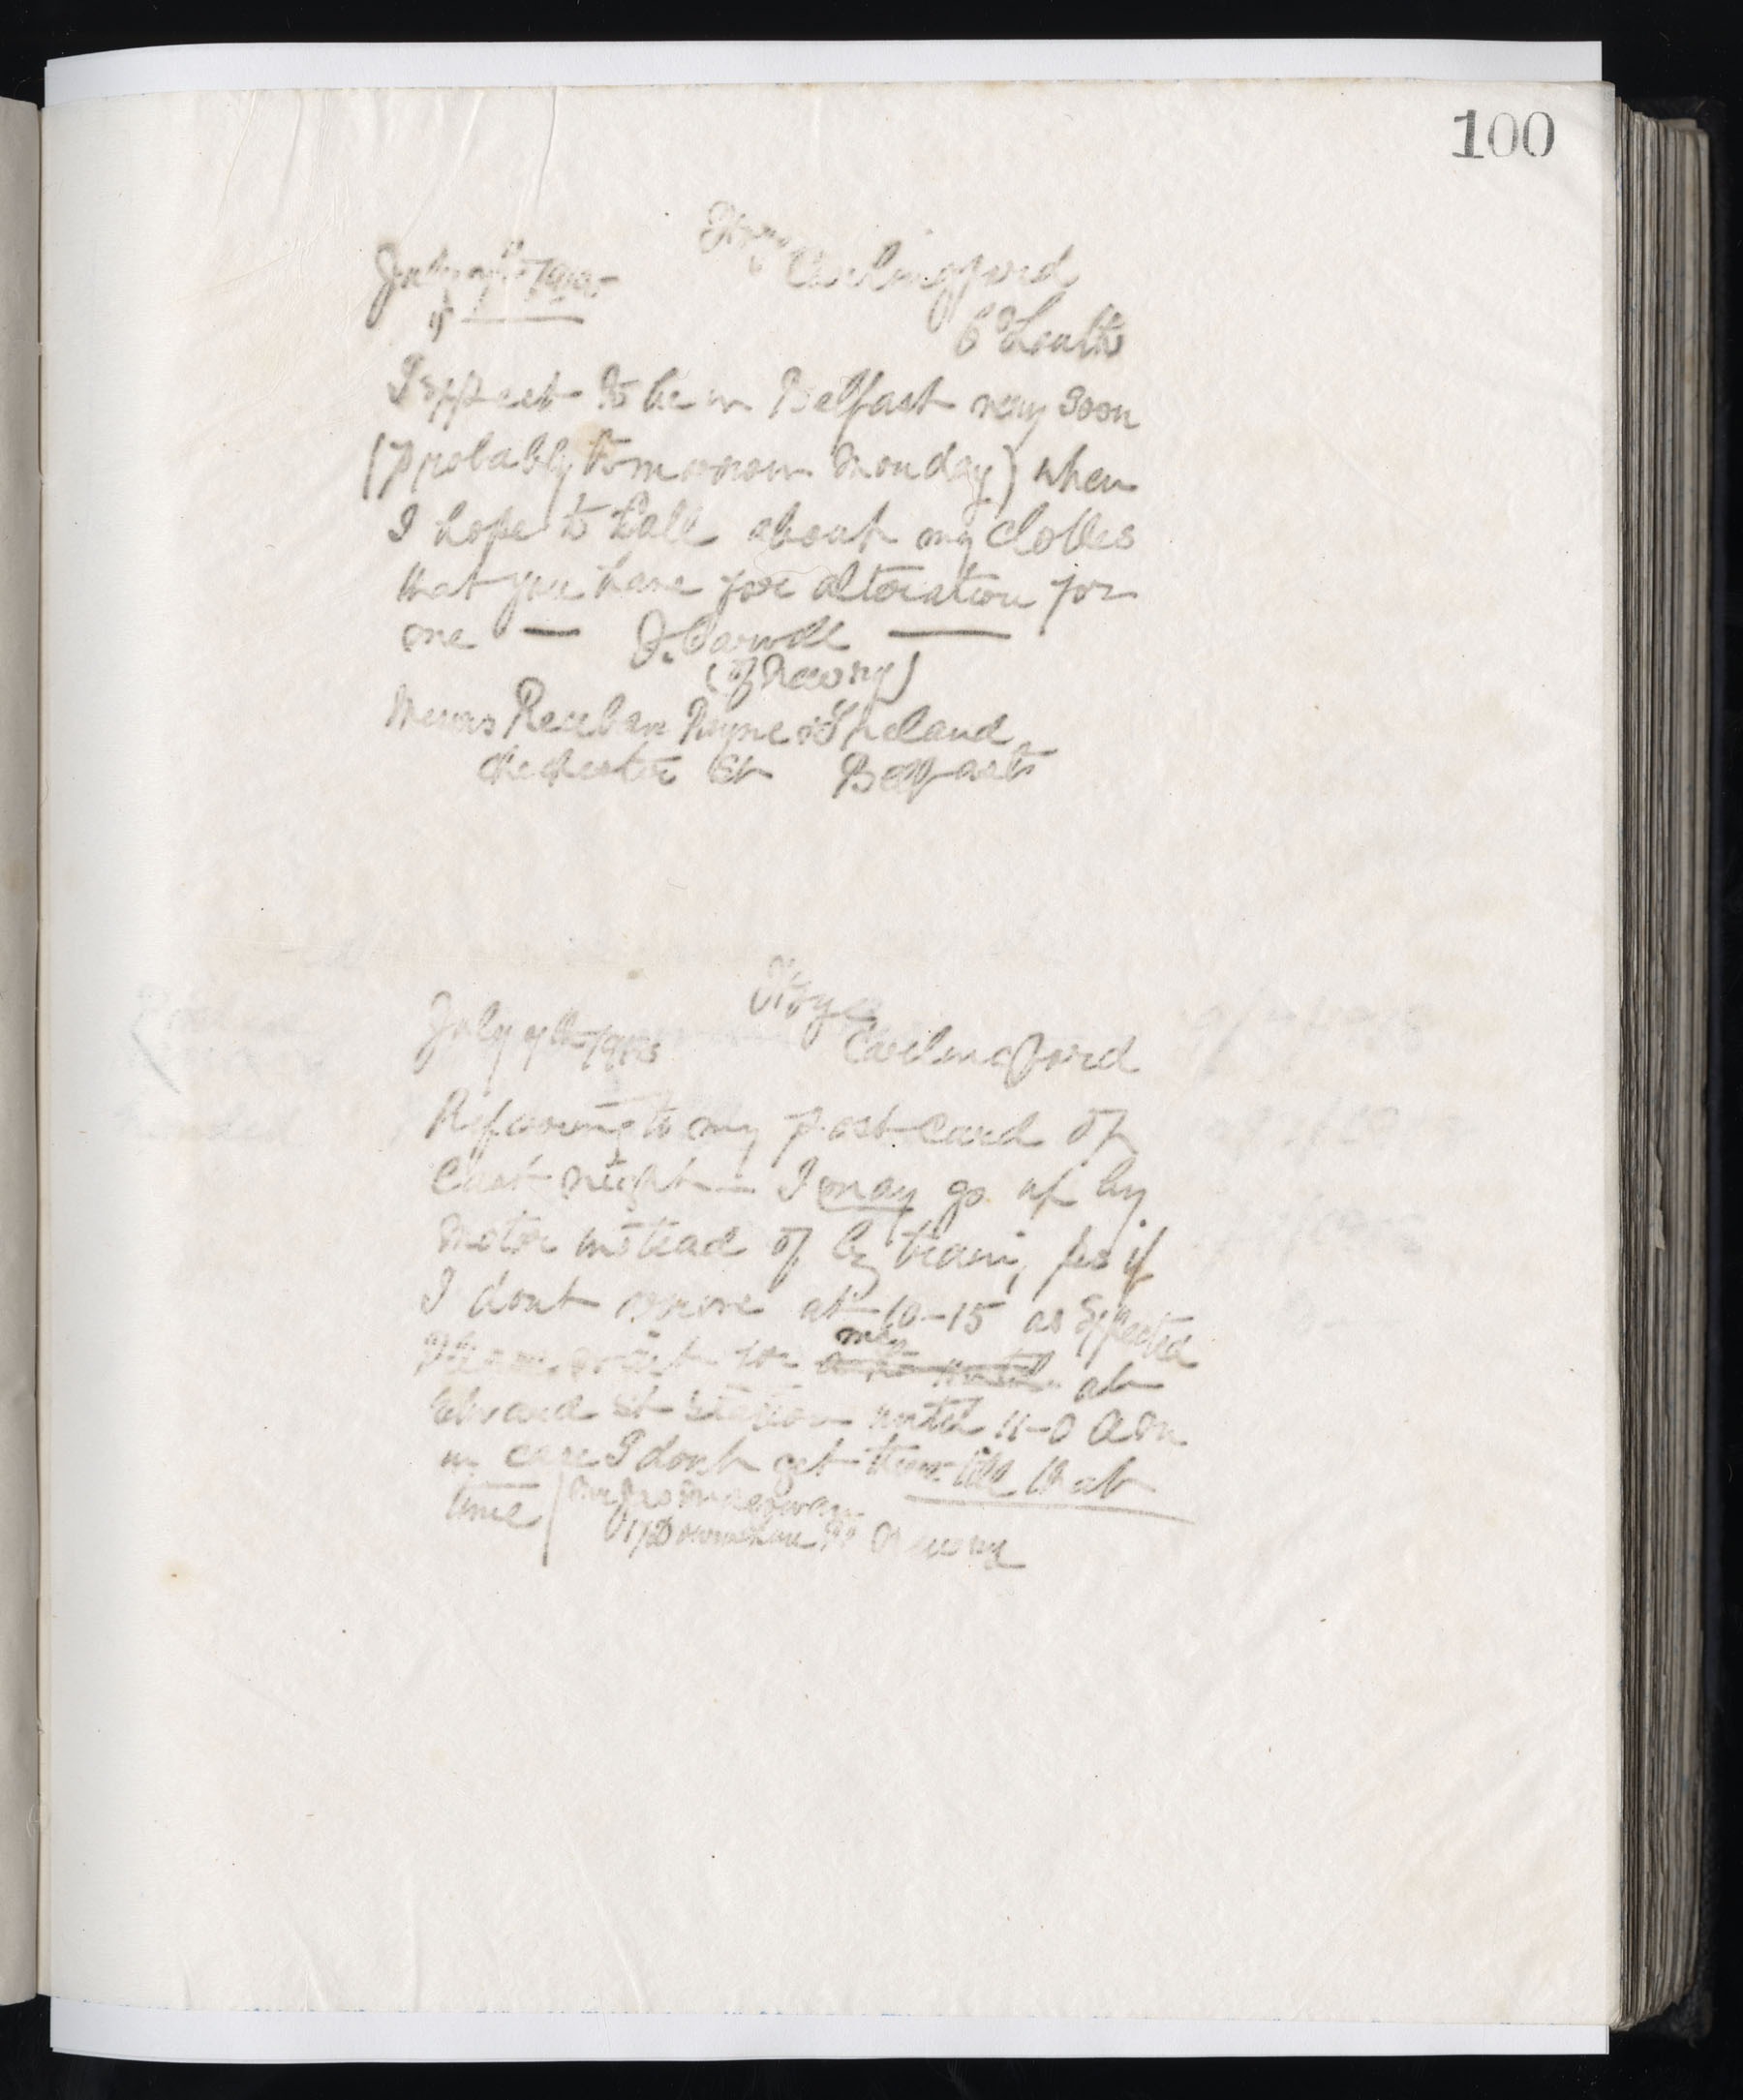 100
Carlingford
July 7th 1912
Co Louth
I expect to be in Belfast very soon
(probably tomorrow Monday) when
I hope to call about my clothes
that you have for alteration for
me — J. Carroll —
(of Newry)
Messrs Payne & Ireland
Chichester St Belfast
July 7th
Carlingford
Referring to my post card of
last night — I may go up by
motor instead of by train, so if
I dont arrive at 10-15 as expected
Please wait for me at
Edward St Station until 11-0 am
in case I dont get there till that
time
17 Downshire Rd Newry